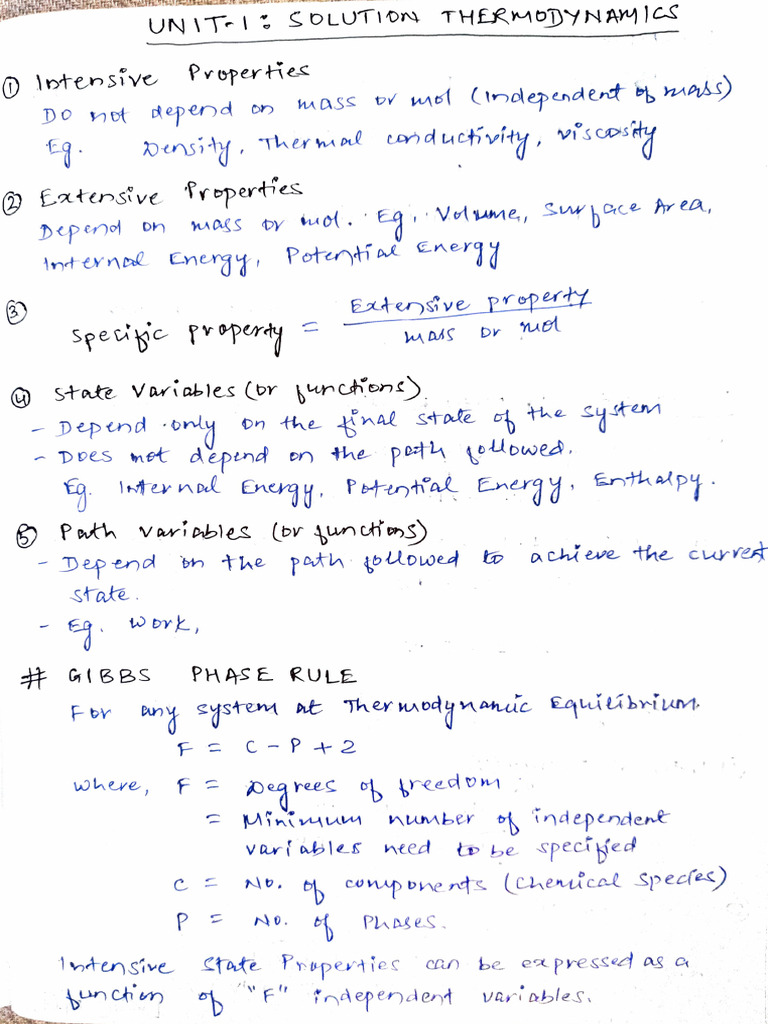 UNIT-1: SOLUTION THERMODYNAMICS
① Intensive Properties
Do not depend on mass or mol (independent of mass)
Eg. Density, Thermal conductivity, Viscosity
② Extensive Properties
Depend on mass or mol. Eg. Volume, Surface Area,
Internal Energy, Potential Energy
③ Specific property = Extensive property / mass or mol
④ State Variables (or functions)
- Depend only on the final state of the system
- Does not depend on the path followed.
Eg. Internal Energy, Potential Energy, Enthalpy.
⑤ Path variables (or functions)
- Depend on the path followed to achieve the current
state.
- Eg. Work,
# GIBBS PHASE RULE
For any system at Thermodynamic Equilibrium.
F = C - P + 2
where, F = Degrees of freedom
= Minimum number of independent
variables need to be specified
C = No. of components (Chemical Species)
P = No. of Phases.
Intensive State Properties can be expressed as a
function of "F" independent variables.